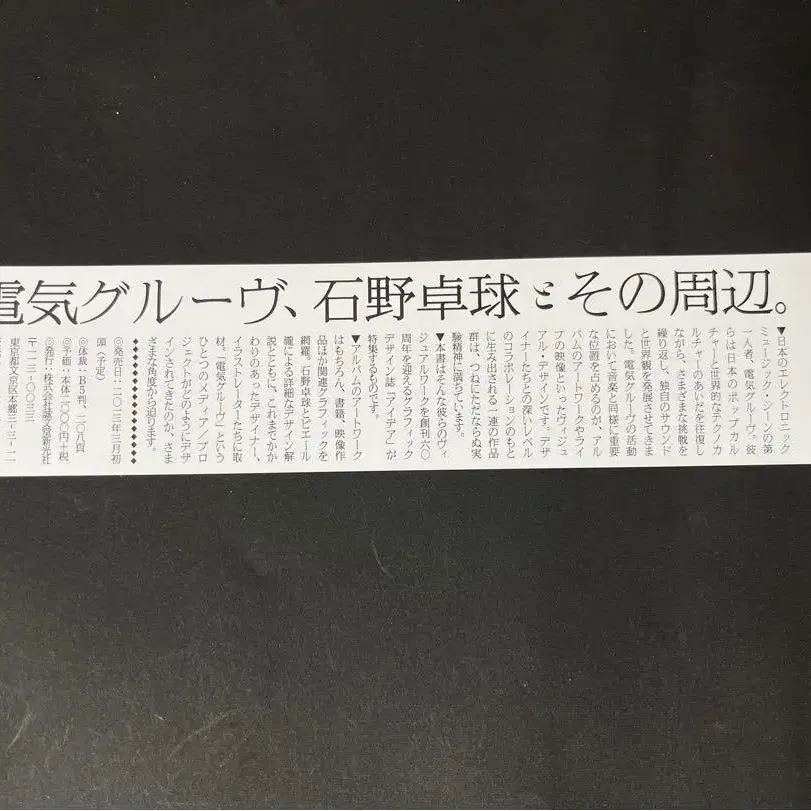 電気グルーヴ、石野卓球とその周辺。
▼日本のエレクトロニック
ミュージック・シーンの第
一人者、電気グルーヴ。彼
らは日本のポップカル
チャーと世界的なテクノカ
ルチャーのあいだを往復し
ながら、さまざまな挑戦を
繰り返し、独自のサウンド
と世界観を発展させてきま
した。電気グルーヴの活動
において音楽と同様に重要
な位置を占めるのが、アル
バムのアートワークやライ
ブの映像といったヴィジュ
アル・デザインです。デザ
イナーたちとの深いレベル
のコラボレーションのもと
に生み出される一連の作品
群は、つねにただならぬ実
験精神に満ちています。
▼本書はそんな彼らのヴィ
ジュアルワークを創刊六〇
周年を迎えるグラフィック
デザイン誌「アイデア」が
特集するものです。
▼アルバムのアートワーク
はもちろん、書籍、映像作
品ほか関連グラフィックを
網羅。石野卓球とピエール
瀧による詳細なデザイン解
説とともに、これまでかか
わりのあったデザイナー、
イラストレーターたちに取
材。「電気グルーヴ」という
ひとつのメディア／プロ
ジェクトがどのようにデザ
インされてきたのか、さま
ざまな角度から迫ります。
◆◆◆◆◆◆◆◆◆◆◆◆
◎発売日：二〇一三年三月初
頭〈予定〉
◎体裁：B5判、二〇八頁
◎予価：本体二〇〇〇円＋税
◎発行：株式会社誠文堂新光社
〒一一三－〇〇三三
東京都文京区本郷三－三－一一